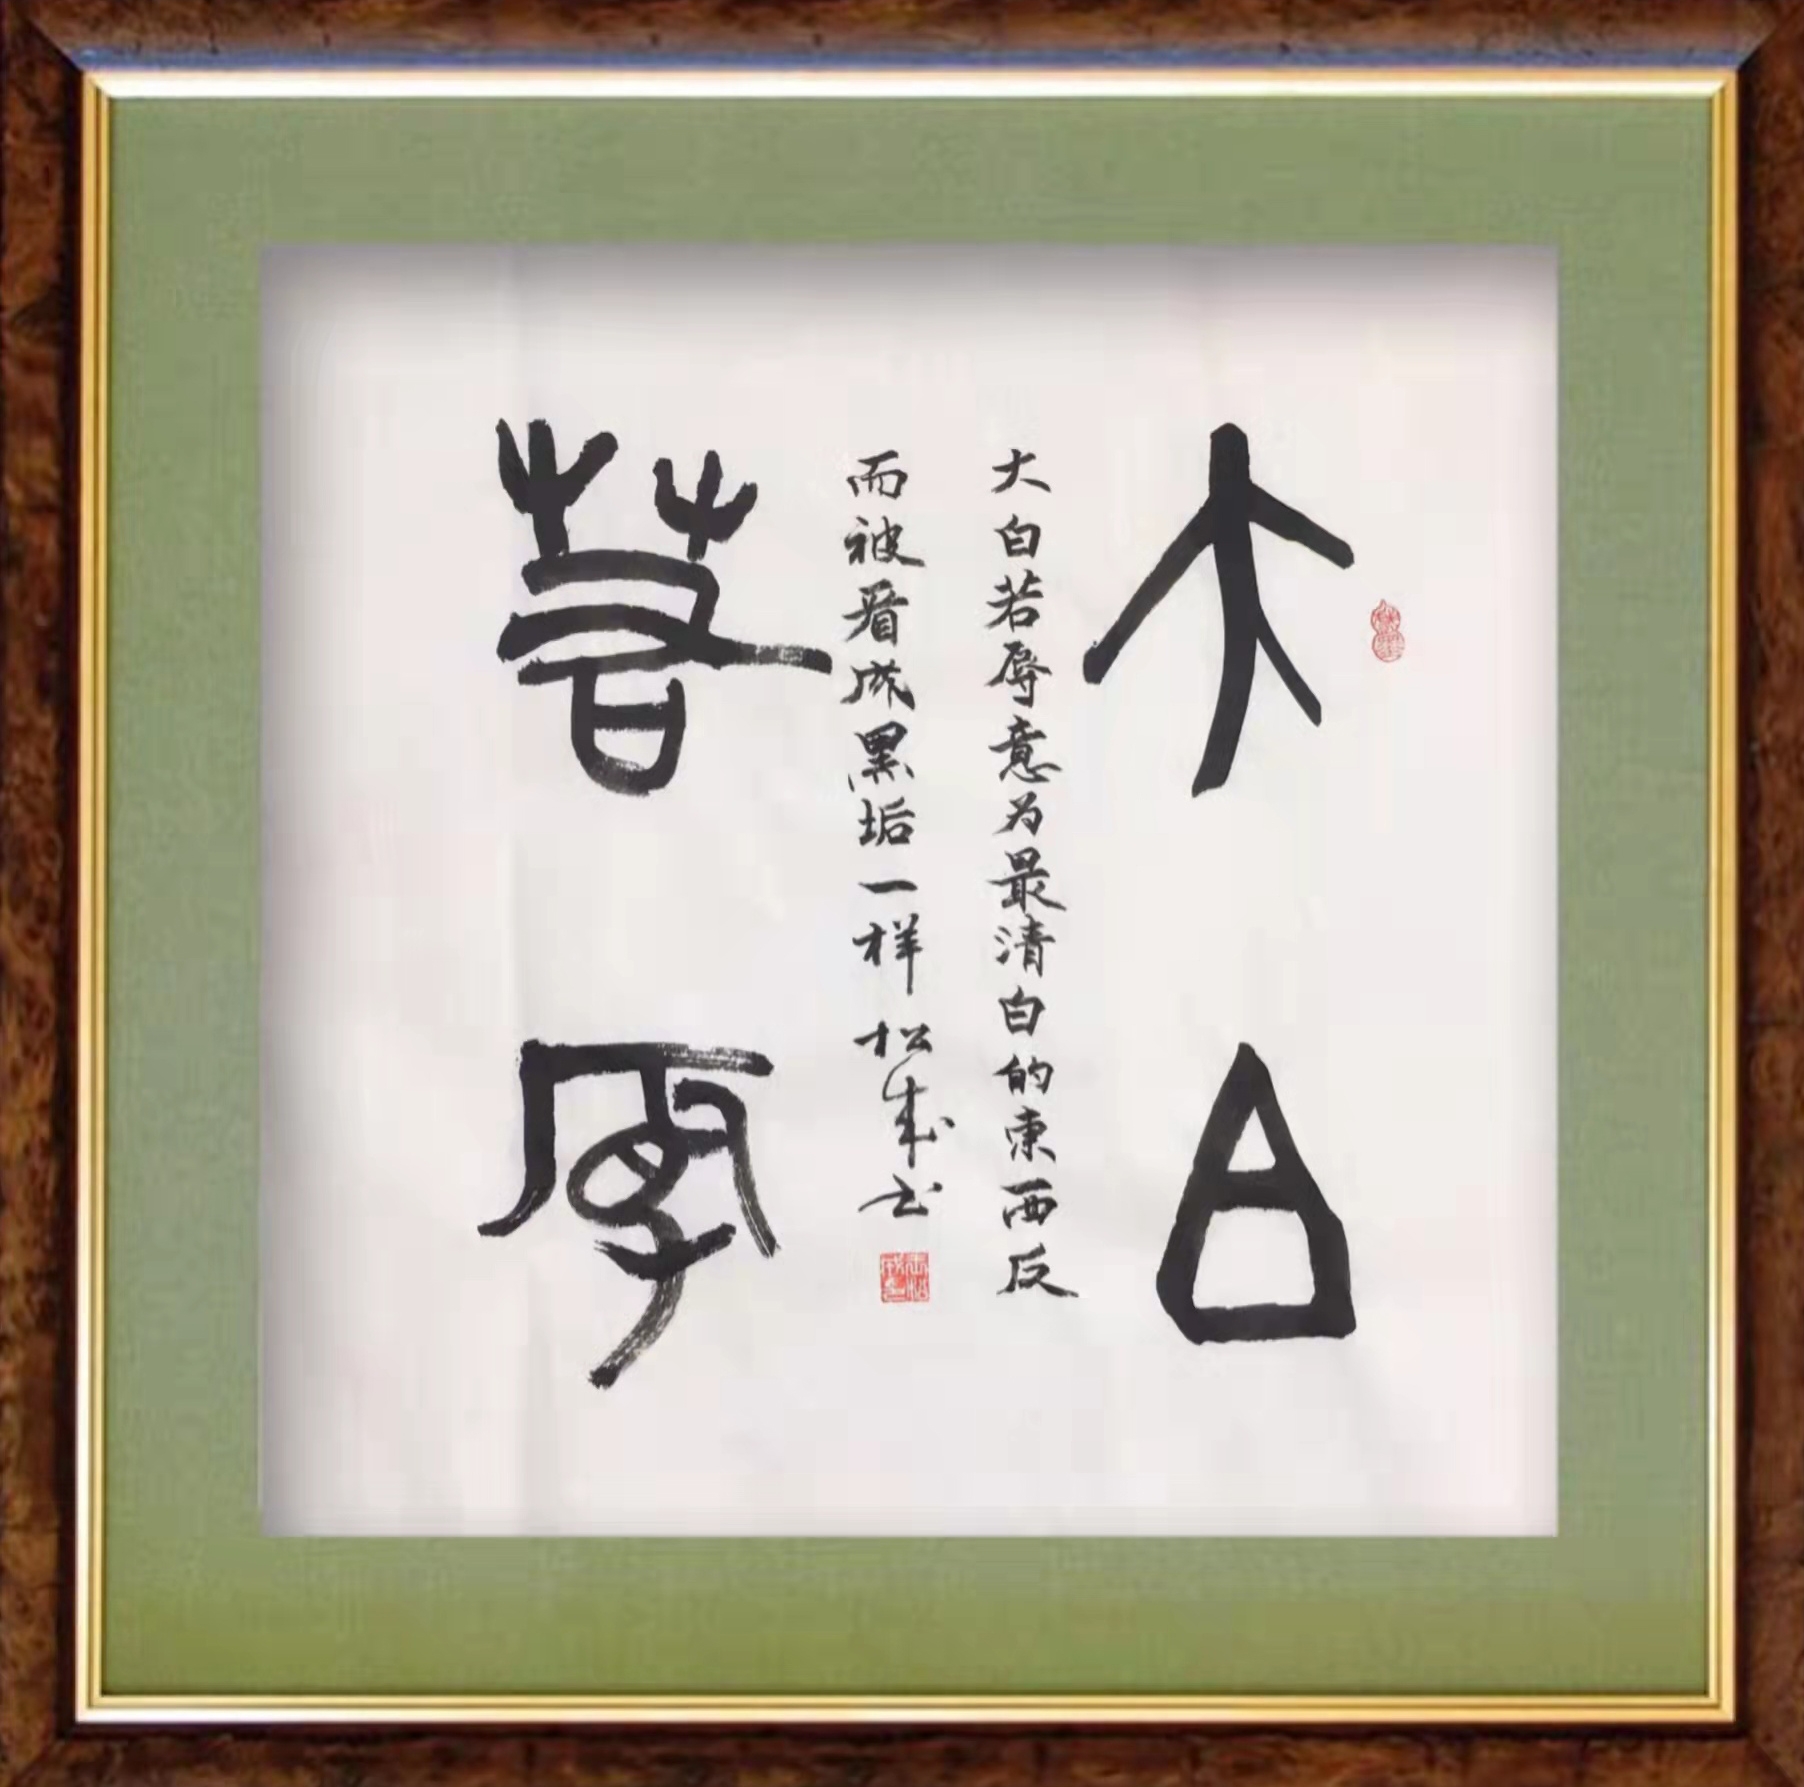 大白
若辱
大白若辱意为最清白的东西反
而被看成黑垢一样 松成书